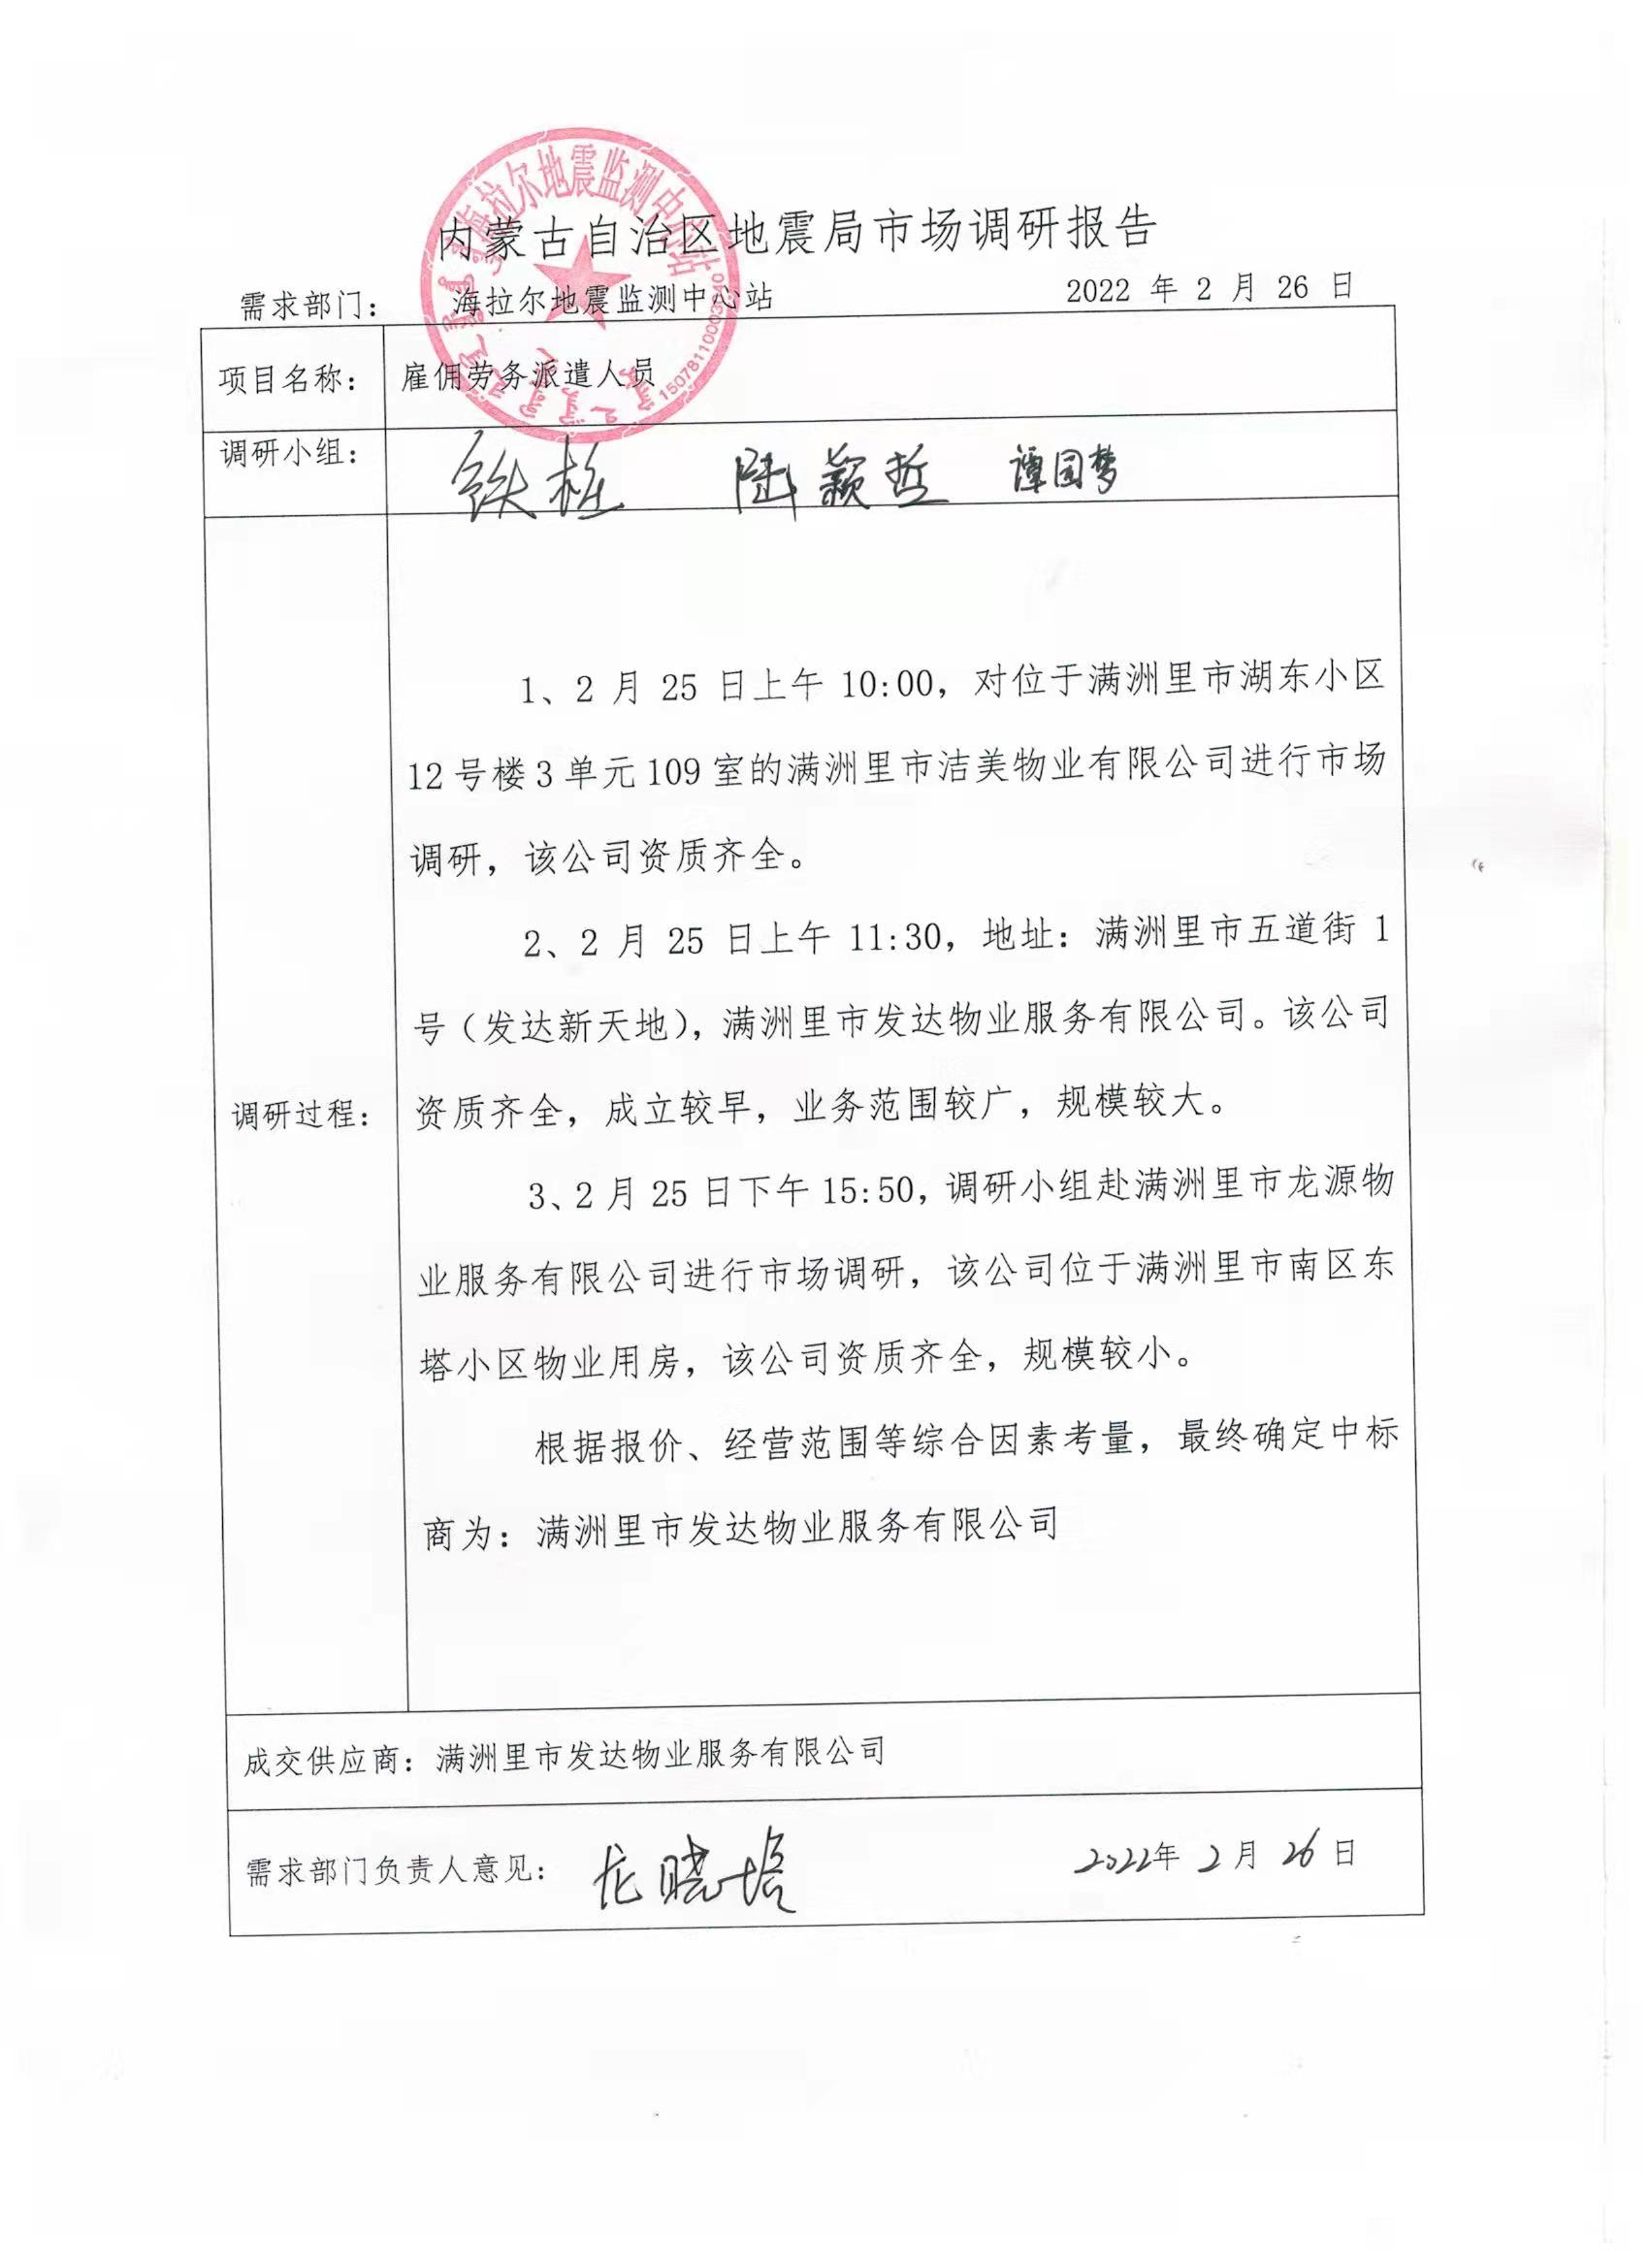 海拉尔地震监测中心站
15078110003240
内蒙古自治区地震局市场调研报告
需求部门： 海拉尔地震监测中心站 2022 年 2 月 26 日
项目名称： 雇佣劳务派遣人员
调研小组： 铁桩 陆颖哲 谭园梦
调研过程：
1、2 月 25 日上午 10:00，对位于满洲里市湖东小区
12 号楼 3 单元 109 室的满洲里市洁美物业有限公司进行市场
调研，该公司资质齐全。
2、2 月 25 日上午 11:30，地址：满洲里市五道街 1
号（发达新天地），满洲里市发达物业服务有限公司。该公司
资质齐全，成立较早，业务范围较广，规模较大。
3、2 月 25 日下午 15:50，调研小组赴满洲里市龙源物
业服务有限公司进行市场调研，该公司位于满洲里市南区东
塔小区物业用房，该公司资质齐全，规模较小。
根据报价、经营范围等综合因素考量，最终确定中标
商为：满洲里市发达物业服务有限公司
成交供应商：满洲里市发达物业服务有限公司
需求部门负责人意见： 2022年 2 月 26 日